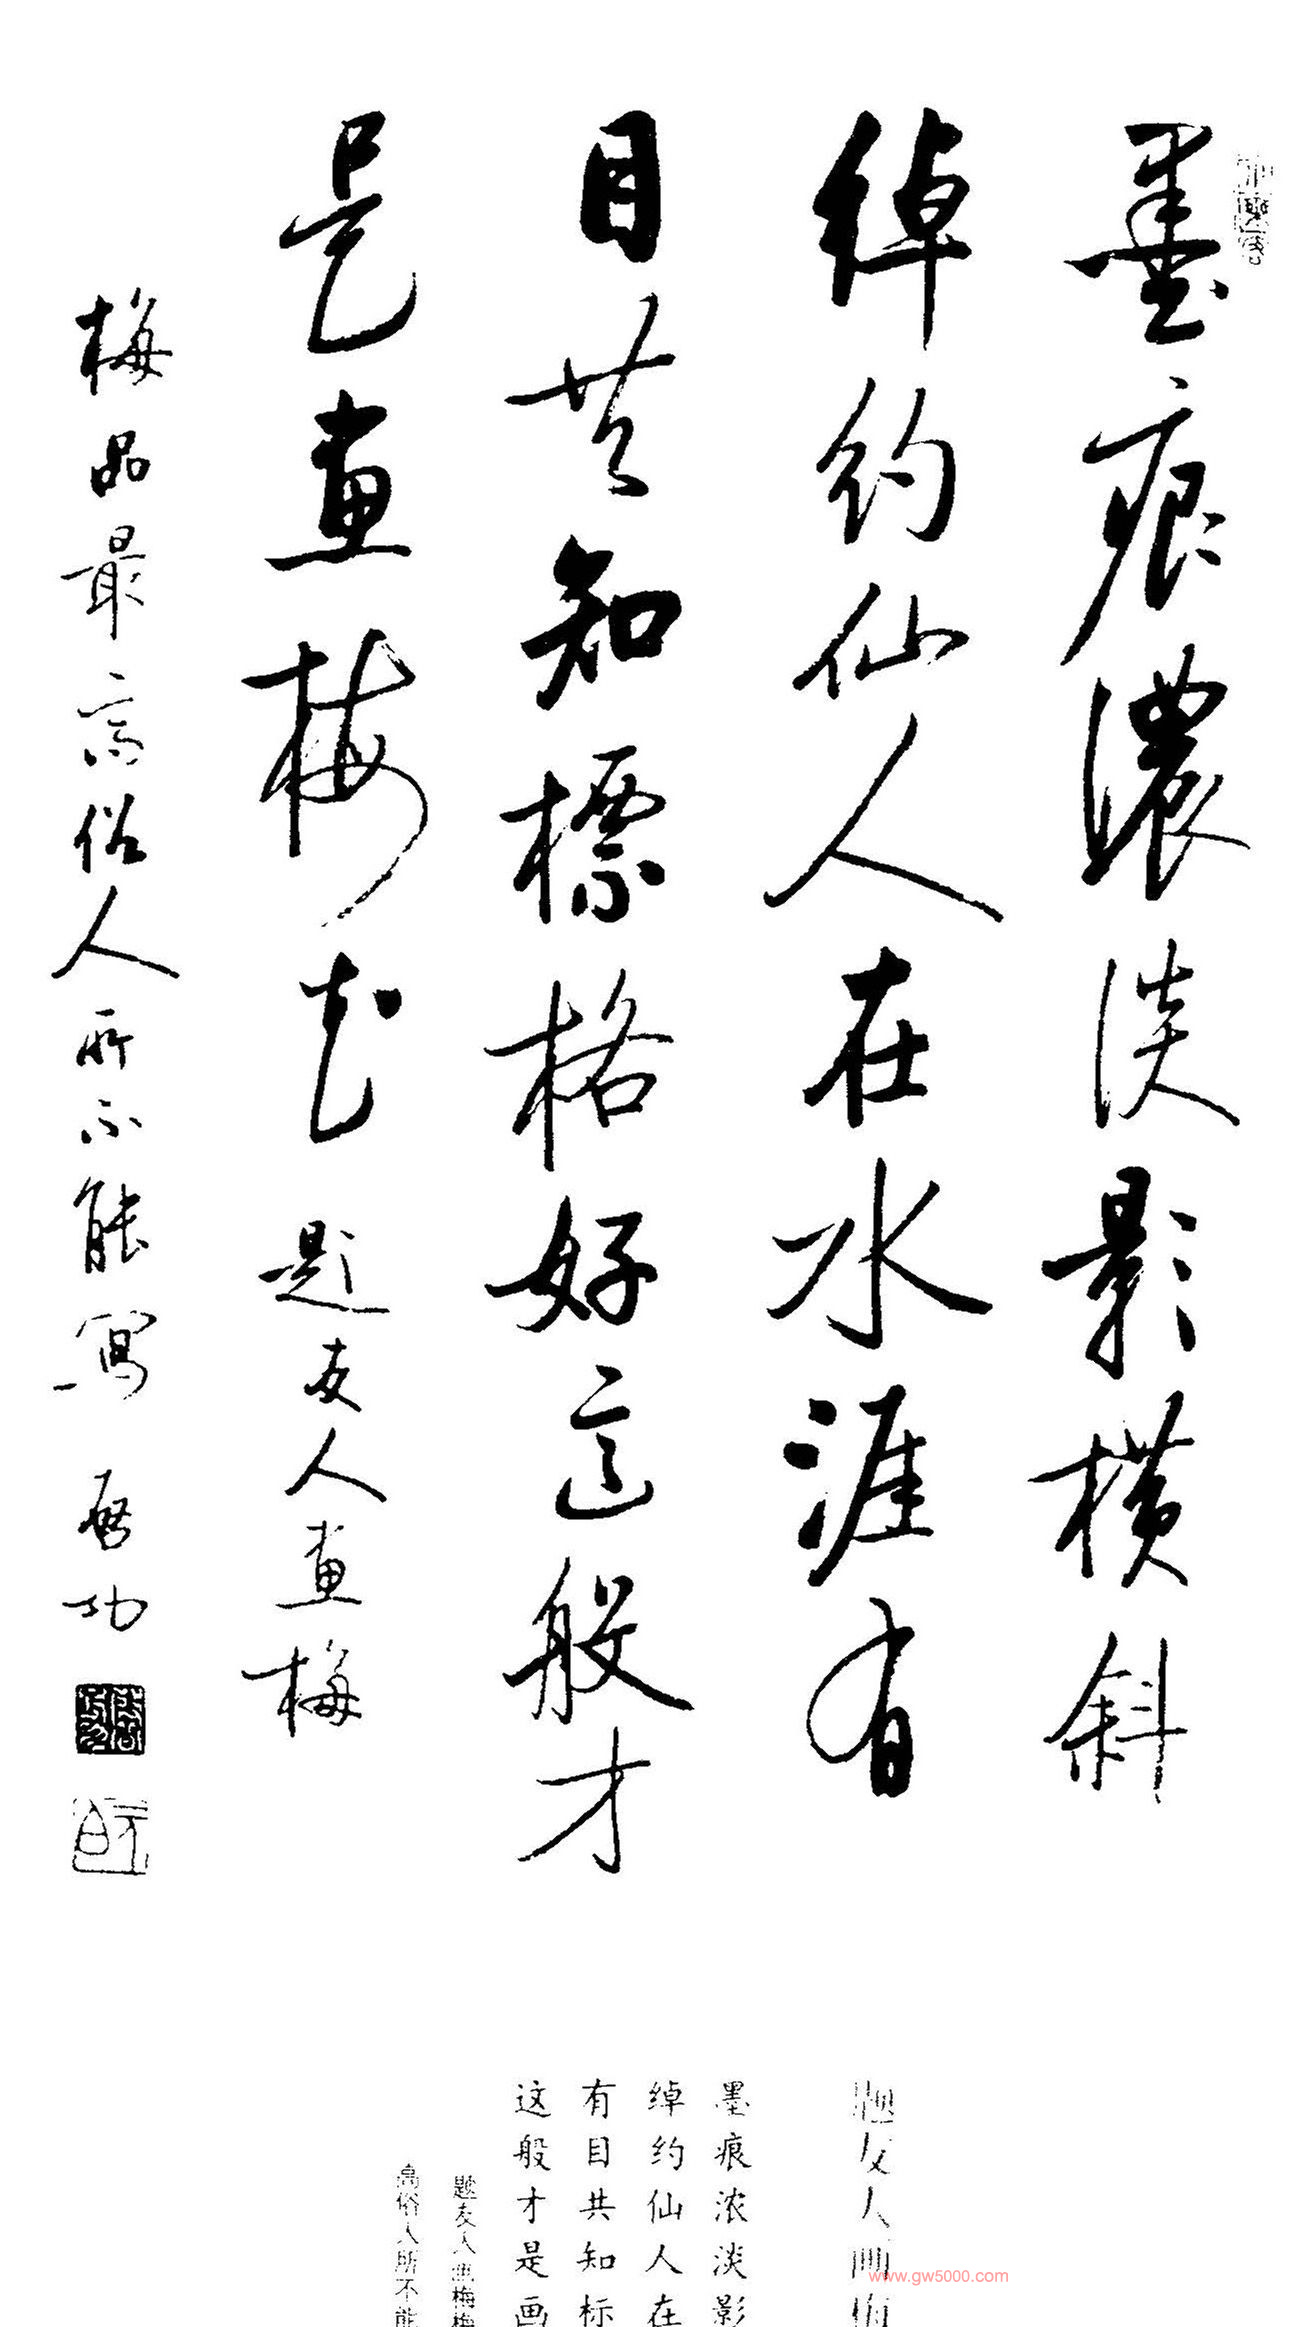 墨痕濃淡影橫斜
綽約仙人在水涯有
目共知標格好這般才
是畫梅花 題友人畫梅
梅品最高俗人所不能寫 啓功
題友人画梅
墨痕浓淡影
绰约仙人在
有目共知标
这般才是画
题友人画梅梅
高俗人所不能
www.gw5000.com